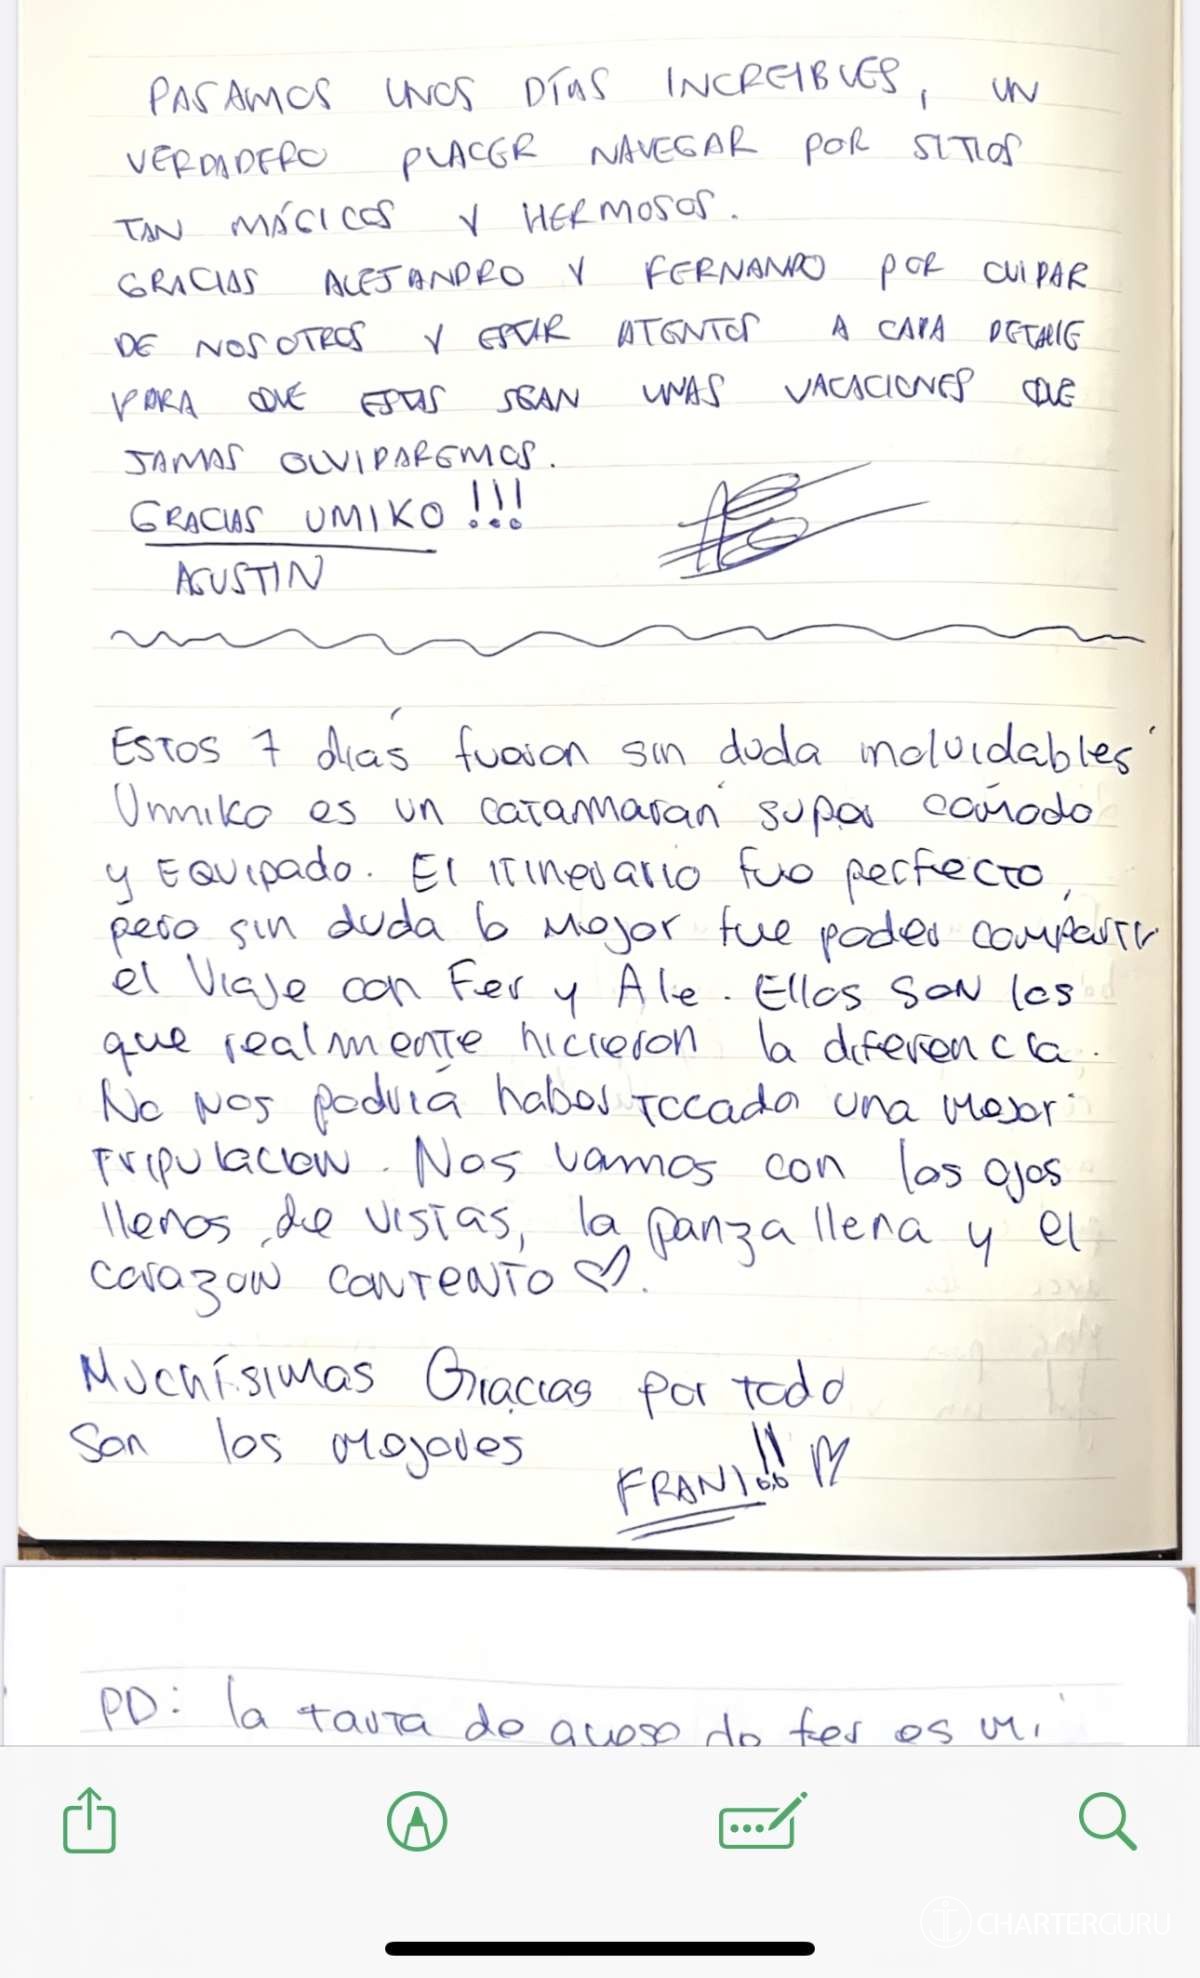 PASAMOS UNOS DÍAS INCREIBLES, UN
VERDADERO PLACER NAVEGAR POR SITIOS
TAN MÁGICOS Y HERMOSOS.
GRACIAS ALEJANDRO Y FERNANDO POR CUIDAR
DE NOSOTROS Y ESTAR ATENTOS A CADA DETALLE
PARA QUE ESTAS SEAN UNAS VACACIONES QUE
JAMAS OLVIDAREMOS.
GRACIAS UMIKO!!!
AGUSTIN
Estos 7 días fueron sin duda inolvidables
Unmiko es un catamarán super cómodo
y Equipado. El itinerario fue perfecto,
pero sin duda lo mejor fue poder compartir
el viaje con Fer y Ale. Ellos son los
que realmente hicieron la diferencia.
No nos podría haber tocado una mejor
tripulación. Nos vamos con los ojos
llenos de vistas, la panza llena y el
corazón contento ♡.
Muchísimas Gracias por todo
Son los mejores
FRANI!! ♡
PD: la tarta de queso de fer es mi
CHARTERGURU